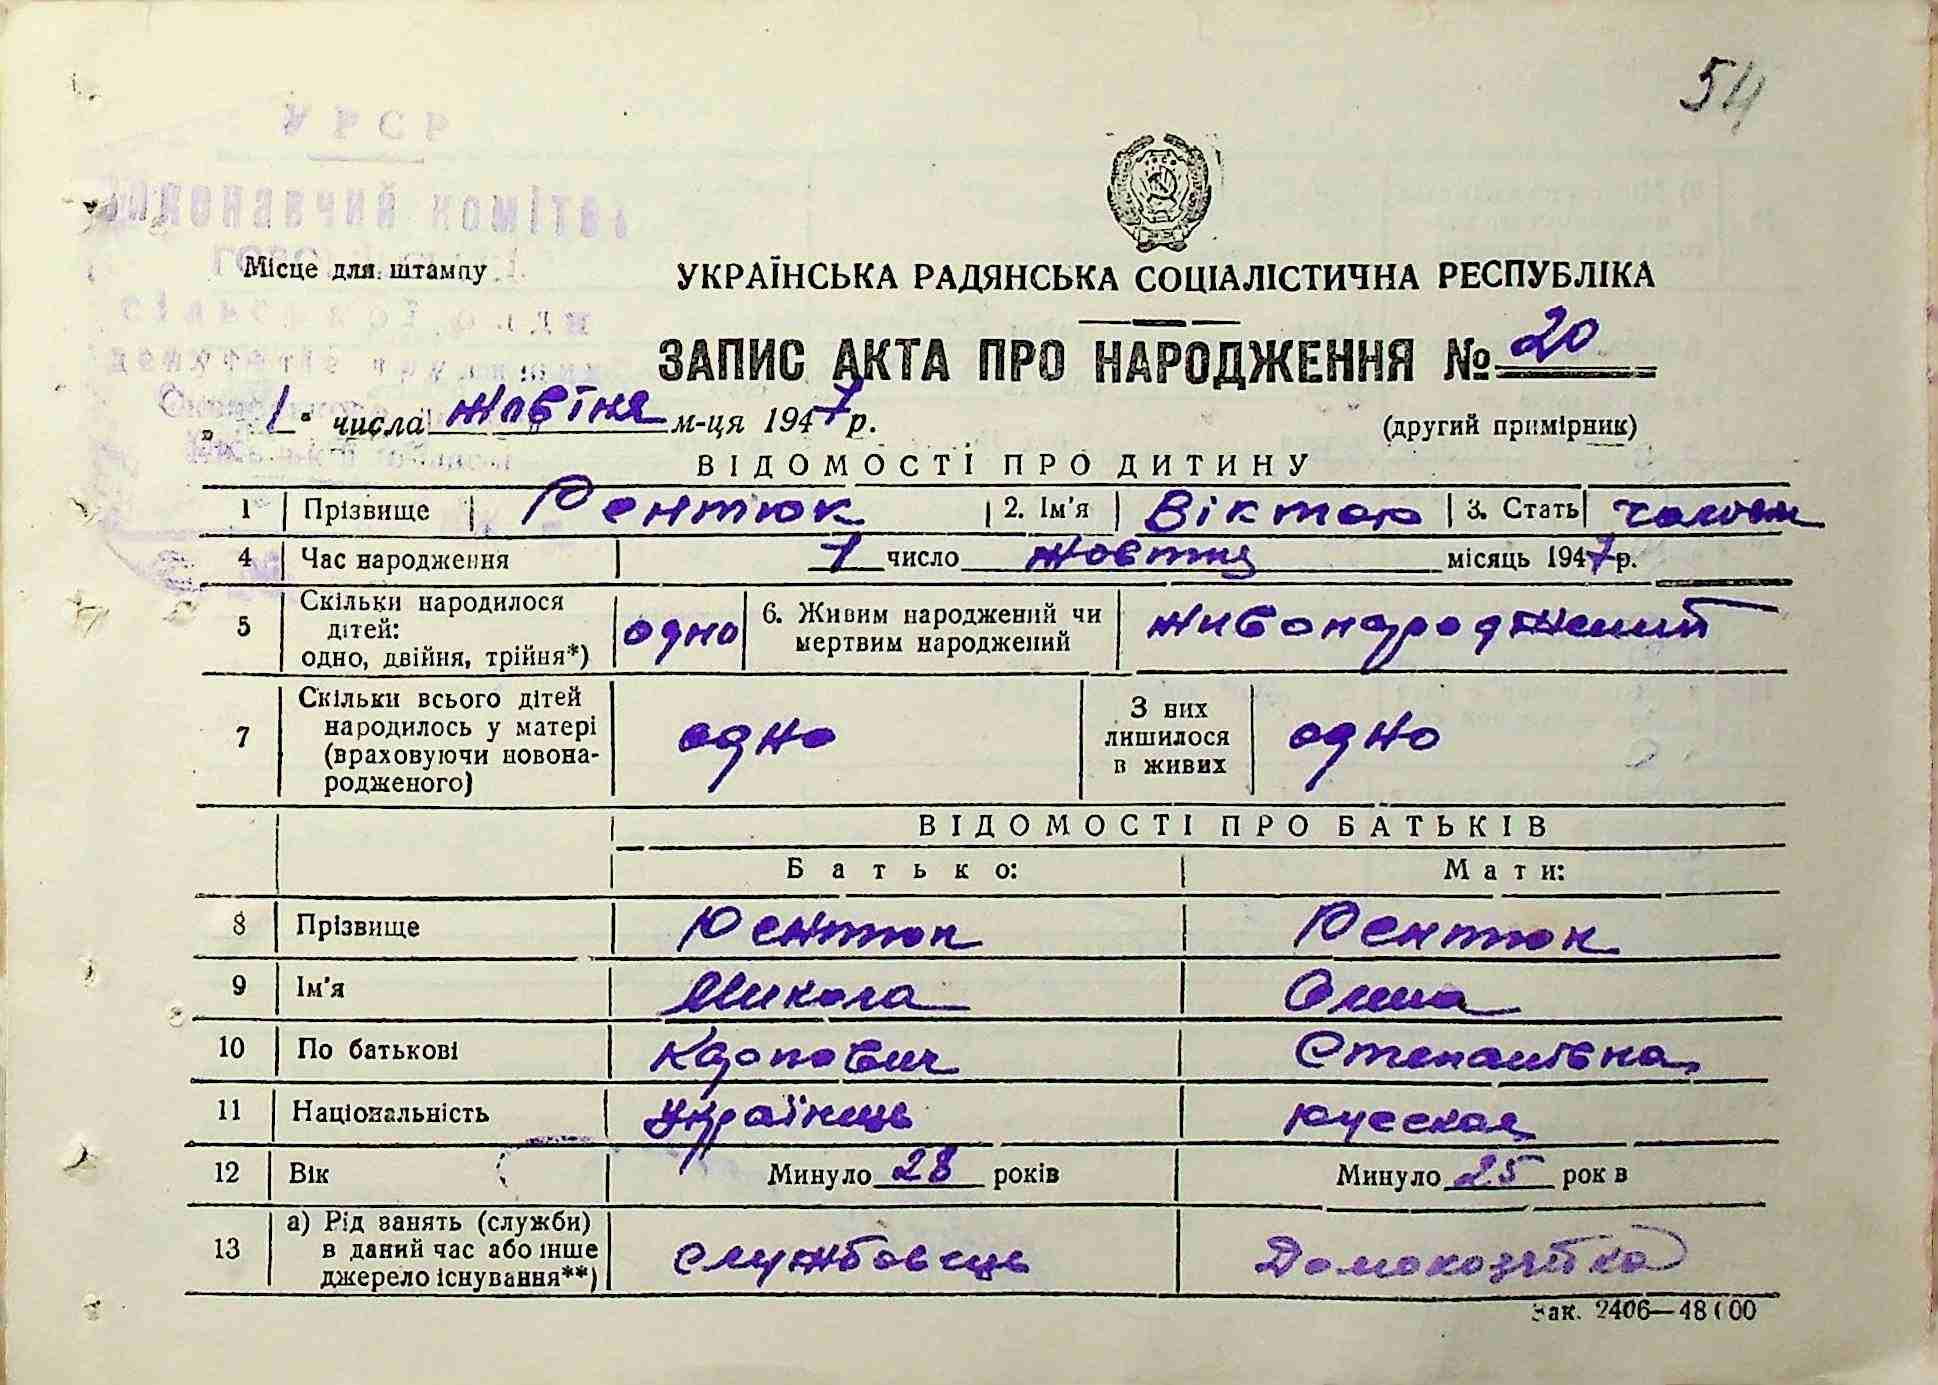 54
УРСР
Виконавчий комітет
Місце для штампу
УКРАЇНСЬКА РАДЯНСЬКА СОЦІАЛІСТИЧНА РЕСПУБЛІКА
ЗАПИС АКТА ПРО НАРОДЖЕННЯ № 20
„ 1 " числа жовтня м-ця 1947 р. (другий примірник)
ВІДОМОСТІ ПРО ДИТИНУ
1 Прізвище Рентюк 2. Ім'я Віктор 3. Стать чолов
4 Час народження 1 число жовтня місяць 1947 р.
5 Скільки народилося дітей: одно, двійня, трійня*) одно 6. Живим народжений чи мертвим народжений живонароджений
7 Скільки всього дітей народилось у матері (враховуючи новонародженого) одно З них лишилося в живих одно
ВІДОМОСТІ ПРО БАТЬКІВ
Батько: Мати:
8 Прізвище Рентюк Рентюк
9 Ім'я Микола
10 По батькові Карпович Степанівна
11 Національність Українець русская
12 Вік Минуло 28 років Минуло 25 рок в
13 а) Рід занять (служби) в даний час або інше джерело існування**) службовець Домохозяйка
Зак. 2406—48000